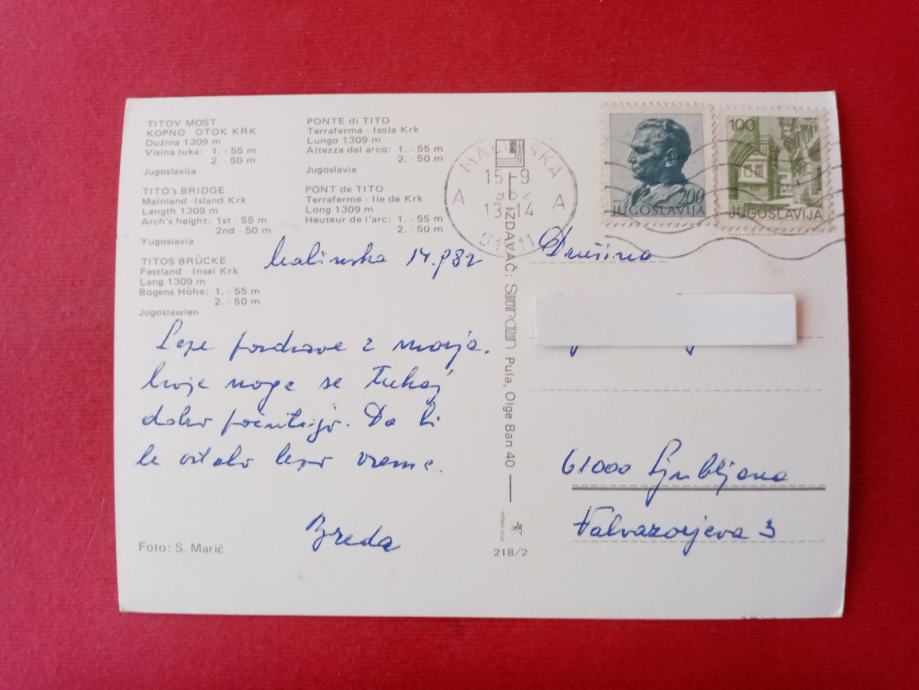 TITOV MOST
KOPNO - OTOK KRK
Dužina 1309 m
Visina luka: 1. - 55 m
2. - 50 m
Jugoslavija
TITO's BRIDGE
Mainland - Island Krk
Length 1309 m
Arch's height: 1st - 55 m
2nd - 50 m
Yugoslavia
TITOS BRÜCKE
Festland - Insel Krk
Lang 1309 m
Bogens Höhe: 1. - 55 m
2. - 50 m
Jugoslawien
PONTE di TITO
Terraferma - Isola Krk
Lungo 1309 m
Altezza del arco: 1. - 55 m
2. - 50 m
Jugoslavia
PONT de TITO
Terraferme - Ile de Krk
Long 1309 m
Heuteur de l'arc: 1. - 55 m
2. - 50 m
Malinska 14.9 82
Lepe pozdrave z morja.
Moje noge se tukaj
dobro počutijo. Da bi
le ostalo lepo vreme.
Breda
Foto: S. Marić
IZDAVAČ: Pula, Olge Ban 40
218/2
MALINSKA
15-9
13-14
A A
200
JUGOSLAVIJA
100
JUGOSLAVIJA
Družina
61000 Ljubljana
Valvazorjeva 3